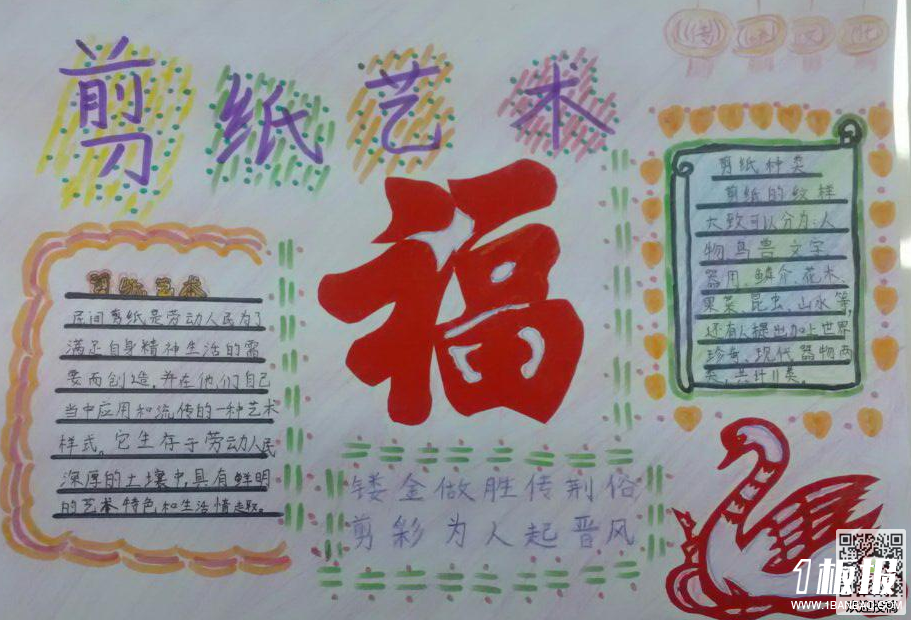 剪纸艺术
传统文化
福
剪纸艺术
民间剪纸是劳动人民为了
满足自身精神生活的需
要而创造，并在他们自己
当中应用和流传的一种艺术
样式。它生存于劳动人民
深厚的土壤中，具有鲜明
的艺术特色和生活情趣。
剪纸种类
剪纸的纹样
大致可以分为:人
物、鸟兽、文字、
器用、鳞介、花木、
果菜、昆虫、山水等，
还有人提出加上世界
珍奇、现代器物两
类，共计11类。
镂金做胜传荆俗
剪彩为人起晋风
1板报
WWW.1BANBAO.COM
欢迎投稿